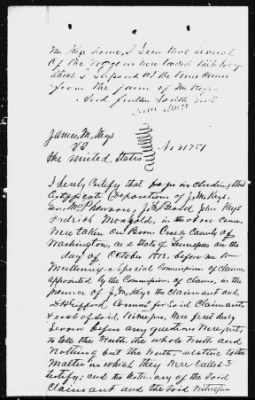 Mr Keys home, I seen that several
of the waggons were loaded with hay
which I suposed at the time came
from the farm of Mr Keys
And further saith not
James M, Keys
vs
the United States
No 21751
I hereby Certify that pages including this
Certificate Depositions of J, M, Keys
McPherson, J, Beard, John Keys
Fredrick Mongold, in the above cause
were taken on Boon Creek County of
Washington, and State of Tennessee on the
day of October 1873, before me
a Special Commissioner of Claims
appointed by the Commissioners of claims, in the
presence of J, M, Keys the claimant and
Shefford, Counsel for Said Claimants
and of Said Witnesses, were first duly
Sworn before any questions were put,
to tell the truth the whole truth and
nothing but the truth, relative to the
matter in which they were called to
testify; and the testimony of the Said
Claimant and the Said Witnesses